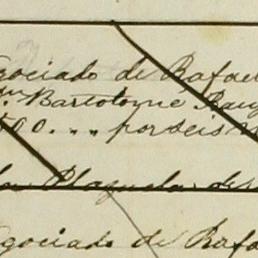 gociado de Rafae
Bartolome
500 . . . por seis
la Plazuela de
gociado de Rafa